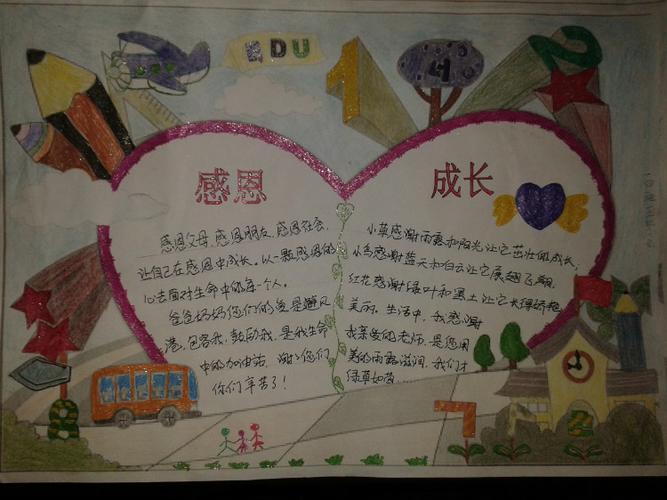 EDU
1
4
2
感恩
感恩父母,感恩朋友,感恩社会,
让自己在感恩中成长。以一颗感恩的
心去面对生命中的每一个人。
爸爸妈妈您们的爱是避风
港,包容我,鼓励我,是我生命
中的加油站,谢谢您们
你们辛苦了!
成长
小草感谢雨露和阳光让它茁壮的成长,
小鸟感谢蓝天和白云让它展翅飞翔,
红花感谢绿叶和黑土让它长得娇艳
美丽,生活中,我感谢
我亲爱的老师,是您用
美的雨露滋润,我们才
绿草如茵……
8
7
2